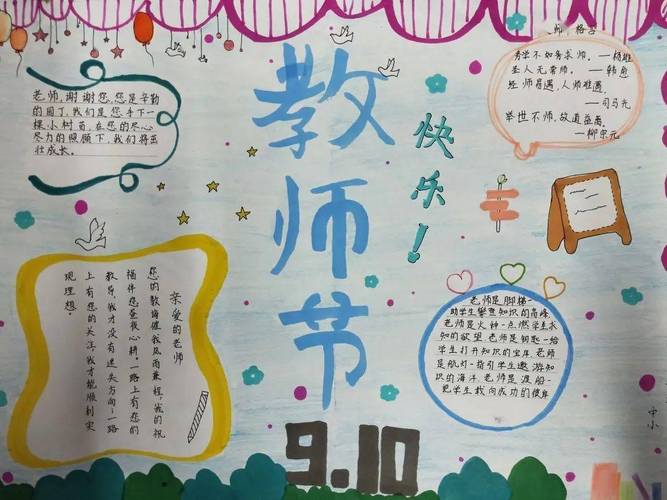 教师节
快乐！
9.10
老师，谢谢您，您是辛勤
的园丁，我们是您手下一
棵小树苗，在您的尽心
尽力的照顾下，我们将茁
壮成长。
务学不如务求师。——杨雄
圣人无常师。——韩愈
经师易遇，人师难遇，
——司马光
举世不师，故道益离。
——柳宗元
亲爱的老师
您的教诲催我风雨兼程，我们的祝
福伴您昼夜心耕。一路上有您们
教导，我才没有迷失方向；一路
上有您的关注，我才能顺利实
现理想！
老师是脚梯-
助学生攀登知识的高峰，
老师是火种-点燃学生求
知的欲望，老师是钥匙-给
学生打开知识的宝库，老师
是航灯-指引学生遨游知
识的海洋，老师是渡船-
把学生载向成功的彼岸
中小